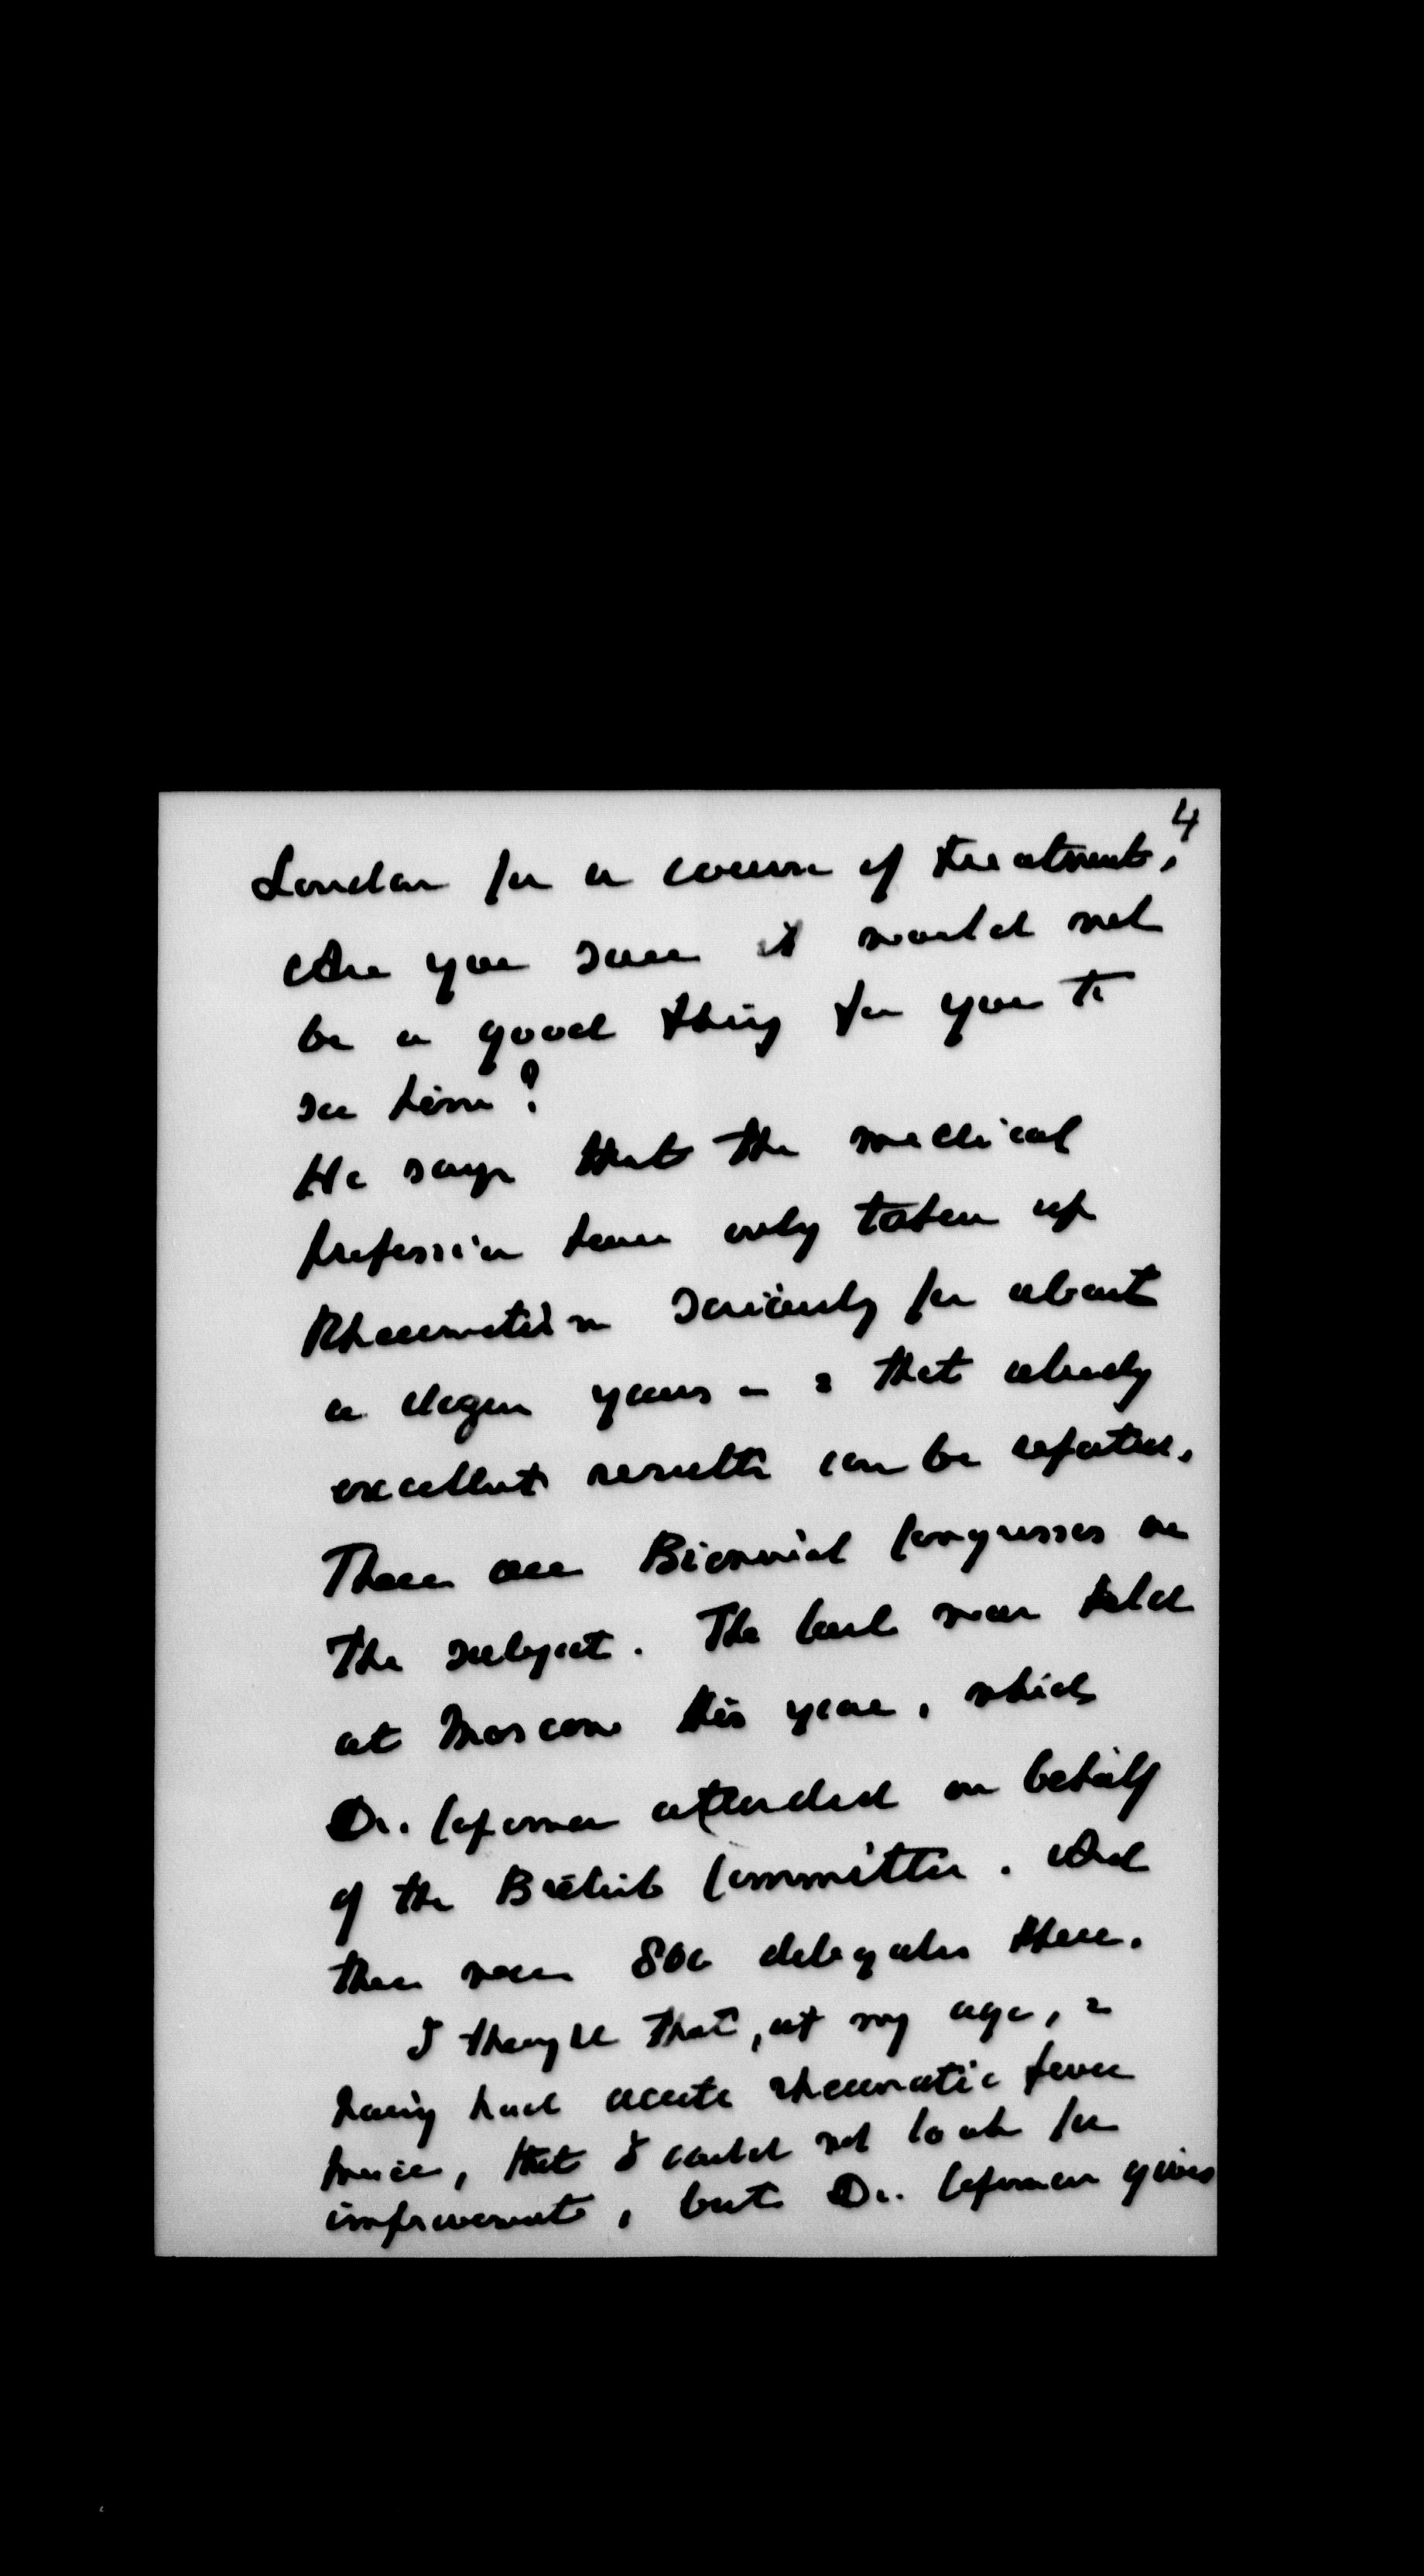 4
London for a course of treatment.
Are you sure it would not
be a good thing for you to
see him?
He says that the medical
profession have only taken up
Rheumatism seriously for about
a dozen years - & that already
excellent results can be reported.
There are Biennial Congresses on
the subject. The last was held
at Moscow this year, which
Dr. Copeman attended on behalf
of the British Committee. And
there were 800 delegates there.
I thought that, at my age, &
having had acute rheumatic fever
twice, that I could not look for
improvement, but Dr. Copeman gives